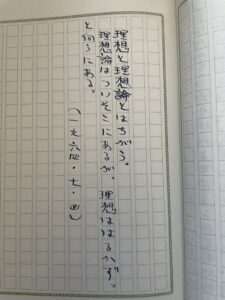 理想と理想論とはちがう。
理想論はついそこにあるが、理想ははるかずっ
と向うにある。
（一九六四・七・四）